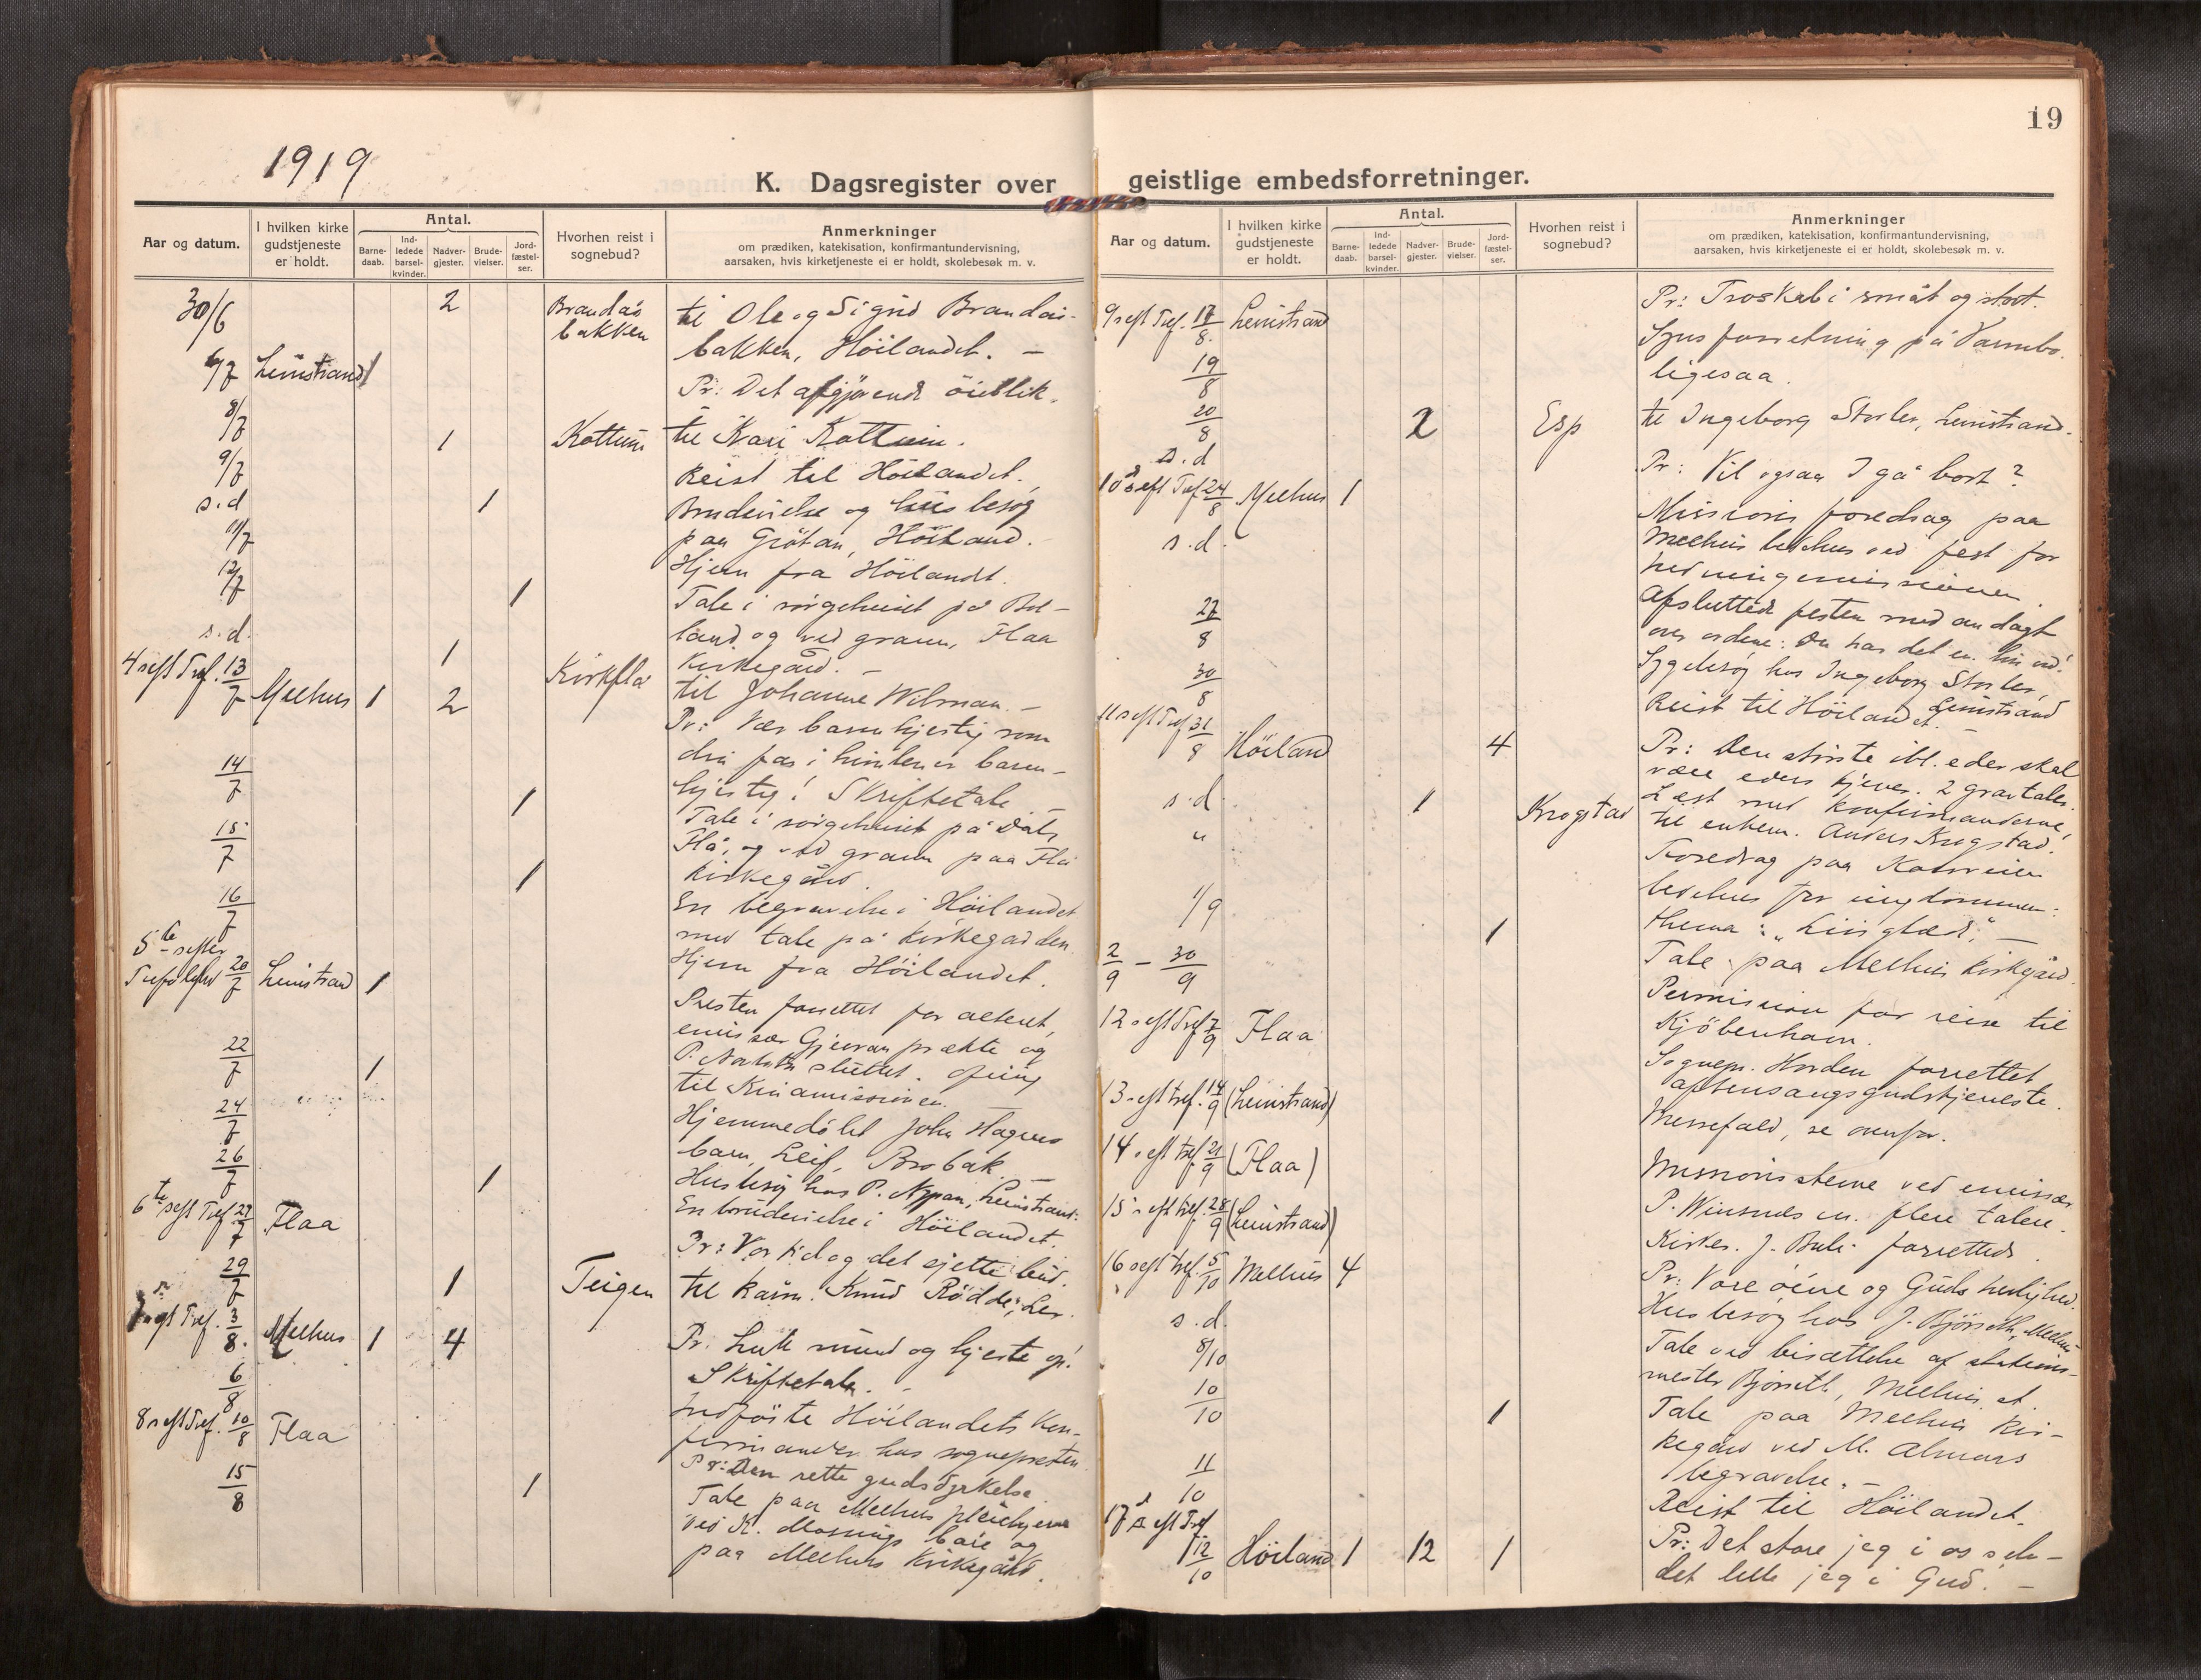 1919
K. Dagsregister over
Aar og datum.
I hvilken kirke gudstjeneste er holdt.
Antal.
Barne-daab.
Ind-ledede barsel-kvinder.
Nadver-gjester.
Brude-vielser.
Jord-fæstel-ser.
Hvorhen reist i sognebud?
Anmerkninger
om prædiken, katekisation, konfirmantundervisning,
aarsaken, hvis kirketjeneste ei er holdt, skolebesøk m. v.
30/6 2 Brandås bakken til Ole og Sigrid Brandås-
bakken, Höilandet. –
6/7 Leinstrand 1 Pr: Det afgjörende öieblik.
8/7 1 Kottum til Kari Kottum.
9/7 Reist til Höilandet.
s.d 1 Brudevielse og husbesög
paa Grötan, Höiland.
11/7 Hjem fra Höilandet.
12/7 1 Tale i sörgehuset på
land og ved graven, Flaa
Kirkegård. –
s.d. 1 Kirkflå til Johanne Wilman. –
4 s eft Tref. 13/7 Melhus 1 2 Pr: Vær barmhjertig som
din far i himlen er barm-
hjertig! Skriftetale –
14/7 1 Tale i sörgehuset på
Flå, og ved graven paa Flå
Kirkegård.
15/7 1 En begravelse i Höilandet
med tale på kirkegården
16/7 Hjem fra Höilandet.
5te s efter
Trefoldghd 20/7 Leinstrand 1 Presten forrettet for alteret,
emissær Gjervan prækte og
P. sluttet. Ofring
til Kinamissionen.
22/7 1 Hjemmedöbt John Hagens
barn, Leif, Brobak. –
24/7 Husbesög hos P. Nypan, Leinstrand.
26/7 1 En brudevielse i Höilandet.
6te s eft Tref 27/7 Flaa Pr: Vor tid og det sjette bud.
29/7 1 Teigen til kårm. Knud Rödde, Ler.
7 s eft Tref. 3/8. Melhus 1 4 Pr: Luk mund og hjerte op!
Skriftetale. –
6/8 Indförte Höilandets kon-
firmander hos sognepresten
8 s eft Tref. 10/8 Flaa Pr: Den rette gudsdyrkelse.
15/8 1 Tale paa Melhus pleiehjem
ved K. Mosengs båre og
paa Melhus kirkegård.
19
geistlige embedsforretninger.
Aar og datum.
I hvilken kirke gudstjeneste er holdt.
Antal.
Barne-daab.
Ind-ledede barsel-kvinder.
Nadver-gjester.
Brude-vielser.
Jord-fæstel-ser.
Hvorhen reist i sognebud?
Anmerkninger
om prædiken, katekisation, konfirmantundervisning,
aarsaken, hvis kirketjeneste ei er holdt, skolebesøk m. v.
9 s eft Tref. 17/8. Leinstrand Pr: Troskab i småt og stort.
19/8 Synsforretning på Varmbo.
20/8 ligesaa.
s.d 2 Esp til Ingeborg Storler, Leinstrand.
10de s eft Tref 24/8 Melhus 1 Pr: Vil ogsaa I gå bort?
s.d. Missions foredrag paa
Melhus bedehus ved fest for
hedningemissionen.
Afsluttede festen med andagt
over ordene: Du har det en.
27/8 Sygebesög hos Ingeborg Storler,
Leinstrand
30/8 Reist til Höilandet.
11 s eft Tref 31/8 Höiland 4 Pr: Den störste ibl. eder skal
være eders tjener. 2 gravtaler.
Læst med konfirmanderne,
s.d. 1 Krogstad til enkem. Anders Krogstad.
" Foredrag paa
bedehus for ungdommen:
thema: „Livsglæde". –
1/9 1 Tale paa Melhus kirkegård.
2/9 – 30/9 Permission for reise til
Kjöbenhavn.
12 s eft Tref 7/9 Flaa Sognepr. Horden forrettet
aftensangsgudstjeneste.
13 s eft tref. 14/9 (Leinstrand) Messefald, se ovenfor.
14 s eft tref 21/9 (Flaa) Missionsstevne ved emissær
P. Winsnes m. flere talere.
15 s eft tref. 28/9 (Leinstrand) Kirkes. J. Buli forrettede
16 s eft tref. 5/10 Melhus 4 Pr: Vore öine og Guds herlighed.
s.d. Husbesög hos J. Björseth, Melhus
8/10 Tale ved bisættelse af stations-
mester Björseth, Melhus st.
10/10 1 Tale paa Melhus kir-
kegård ved M. Almaas
begravelse. –
11/10 Reist til Höilandet.
17de s eft Tref
12/10 Höiland 1 12 1 Pr: Det store jeg i os selv –
det lille jeg i Gud. –